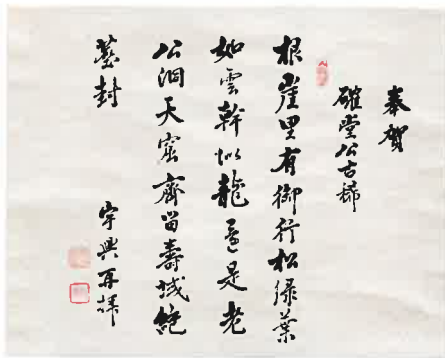 奉賀
確堂公古稀
根崖里有御行松緑葉
如雲幹似龍是老
公洞天窟齊留壽域絶
塵封
宇興再拝